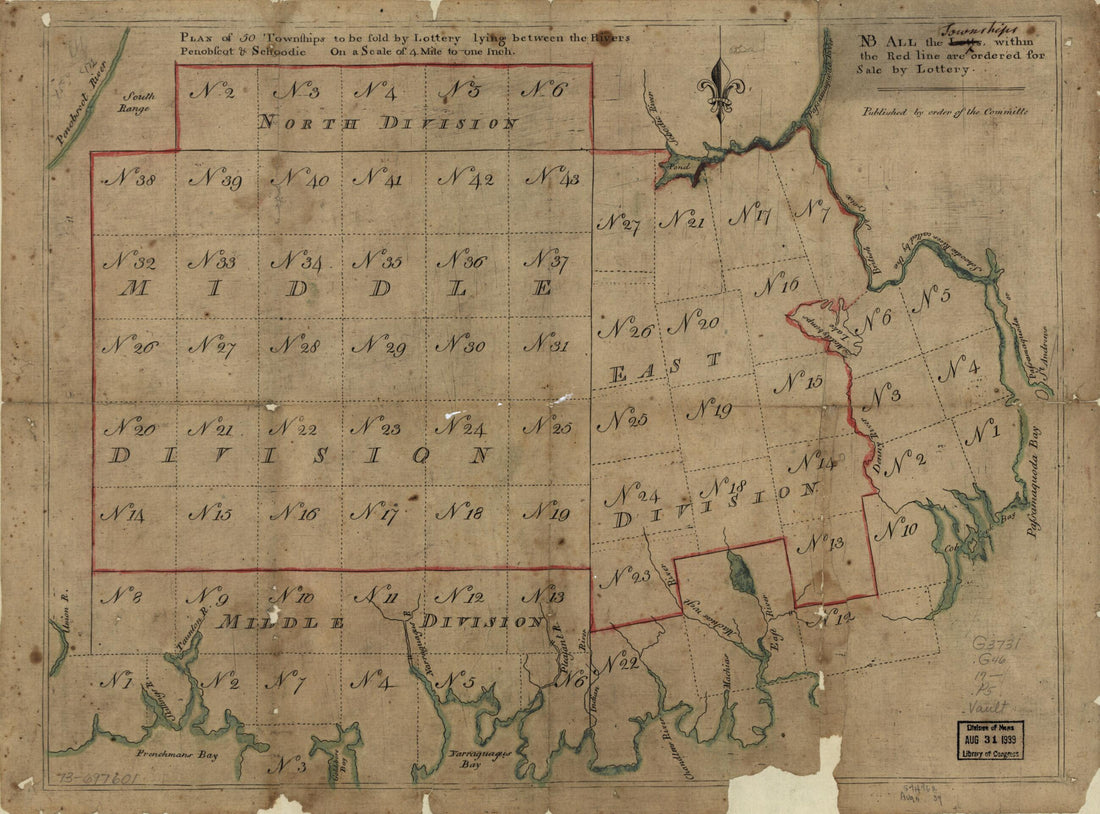 PLAN of 50 Townships to be sold by Lottery lying between the Rivers
Penobscot & Schoodie On a Scale of 4 Mile to one Inch.
Townships
NB ALL the Lotts. within
the Red line are ordered for
Sale by Lottery.
Published by order of the Committe
Penobscot River
South
Range
No 2 No 3 No 4 No 5 No 6
NORTH DIVISION
Schoodie River
Pond
No 38 No 39 No 40 No 41 No 42 No 43
No 27 No 21 No 17 No 7
No 32 No 33 No 34 No 35 No 36 No 37
MIDDLE
No 16
Schoodie River called by the British St Croix
No 26 No 27 No 28 No 29 No 30 No 31
No 26 No 20
No 6 No 5
EAST
No 15
No 3 No 4
Passamaquoda or
St Andrews
No 20 No 21 No 22 No 23 No 24 No 25
No 25 No 19
DIVISION
No 14
Denny River
No 2 No 1
Passamaquoda Bay
No 14 No 15 No 16 No 17 No 18 No 19
No 24 No 18
DIVISION
No 13
No 10
Cobs
Bay
No 8 No 9 No 10 No 11 No 12 No 13
No 23
River
Machias West
East
River
No 12
MILDLE DIVISION
Union R.
Taunton R.
Narraguagus R
Plesant R
Indian River
No 1 No 2 No 7 No 4 No 5 No 6
No 22
Machias
Chandlers River
Frenchmans Bay
No 3
Goldsboro
Bay
Narraguagus
Bay
G3731
G46
19--
P5
Vault
Division of Maps
AUG 31 1939
Library of Congress
73-697601